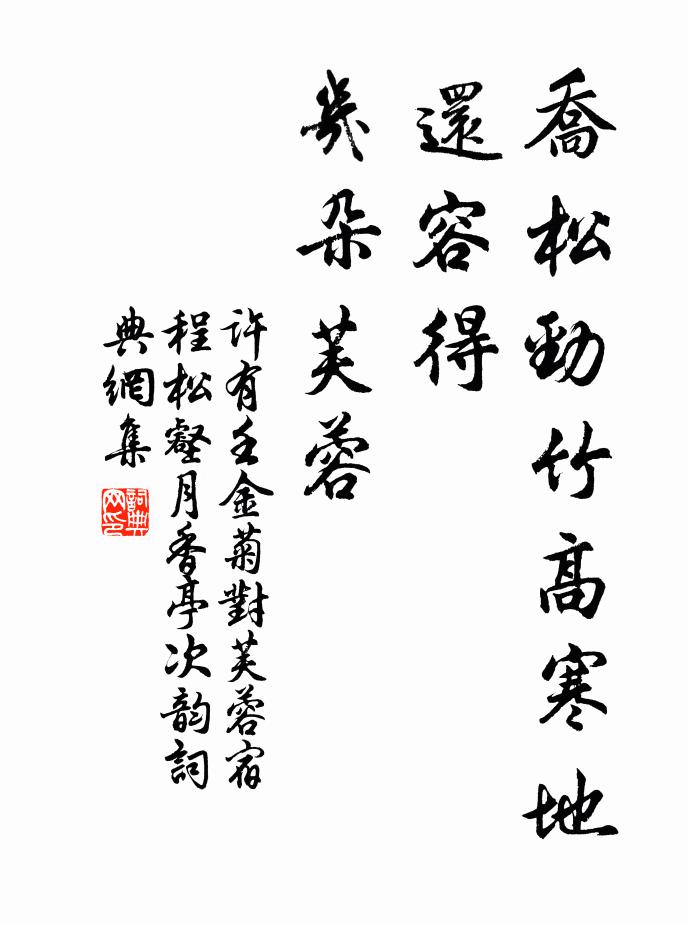 喬松勁竹高寒地
還容得
幾朵芙蓉
許有壬金菊對芙蓉宿
程松壑月香亭次韵詞
典網集
詞典網印